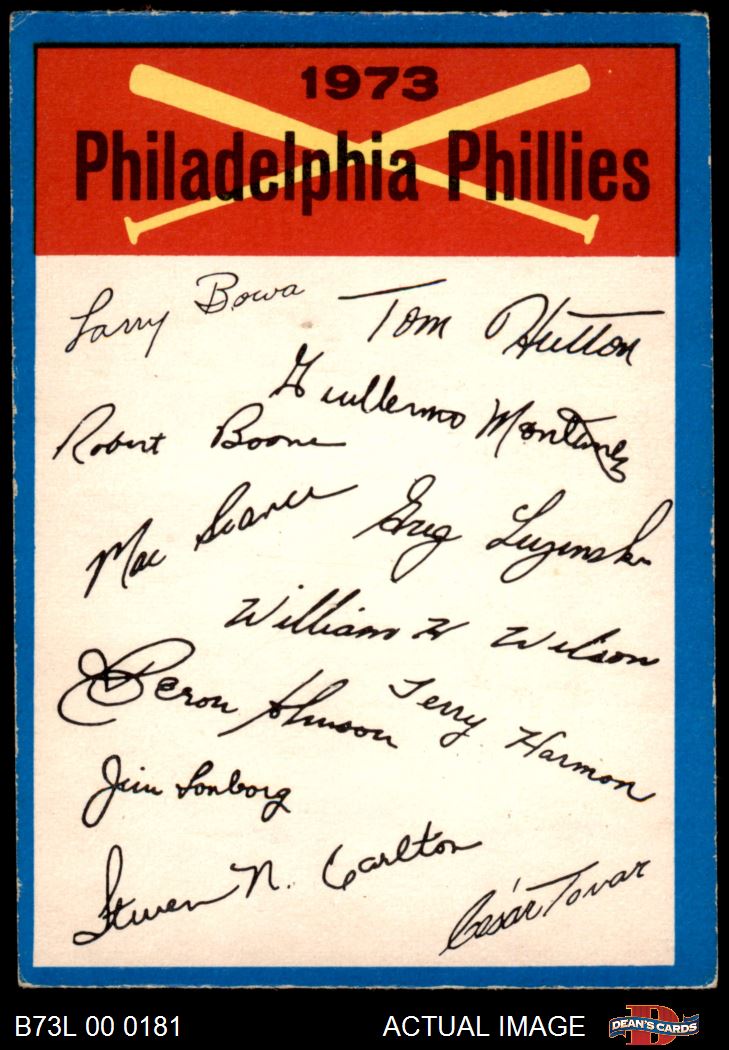 1973
Philadelphia Phillies
Larry Bowa
Tom Hutton
Guillermo Montanez
Robert Boone
Mac Scarce
Greg Luzinski
William H Wilson
Deron Johnson
Terry Harmon
Jim Lonborg
Steven N. Carlton
César Tovar
B73L 00 0181
ACTUAL IMAGE
D
DEAN'S CARDS